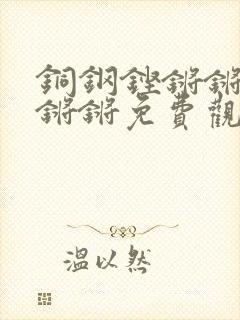 銅鋼鏗鏘鏘
鏘鏘免費觀
溫以然